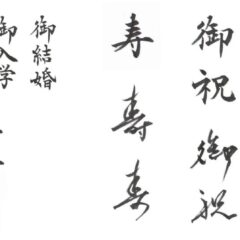 御祝御祝
寿寿寿
御結婚
御入学